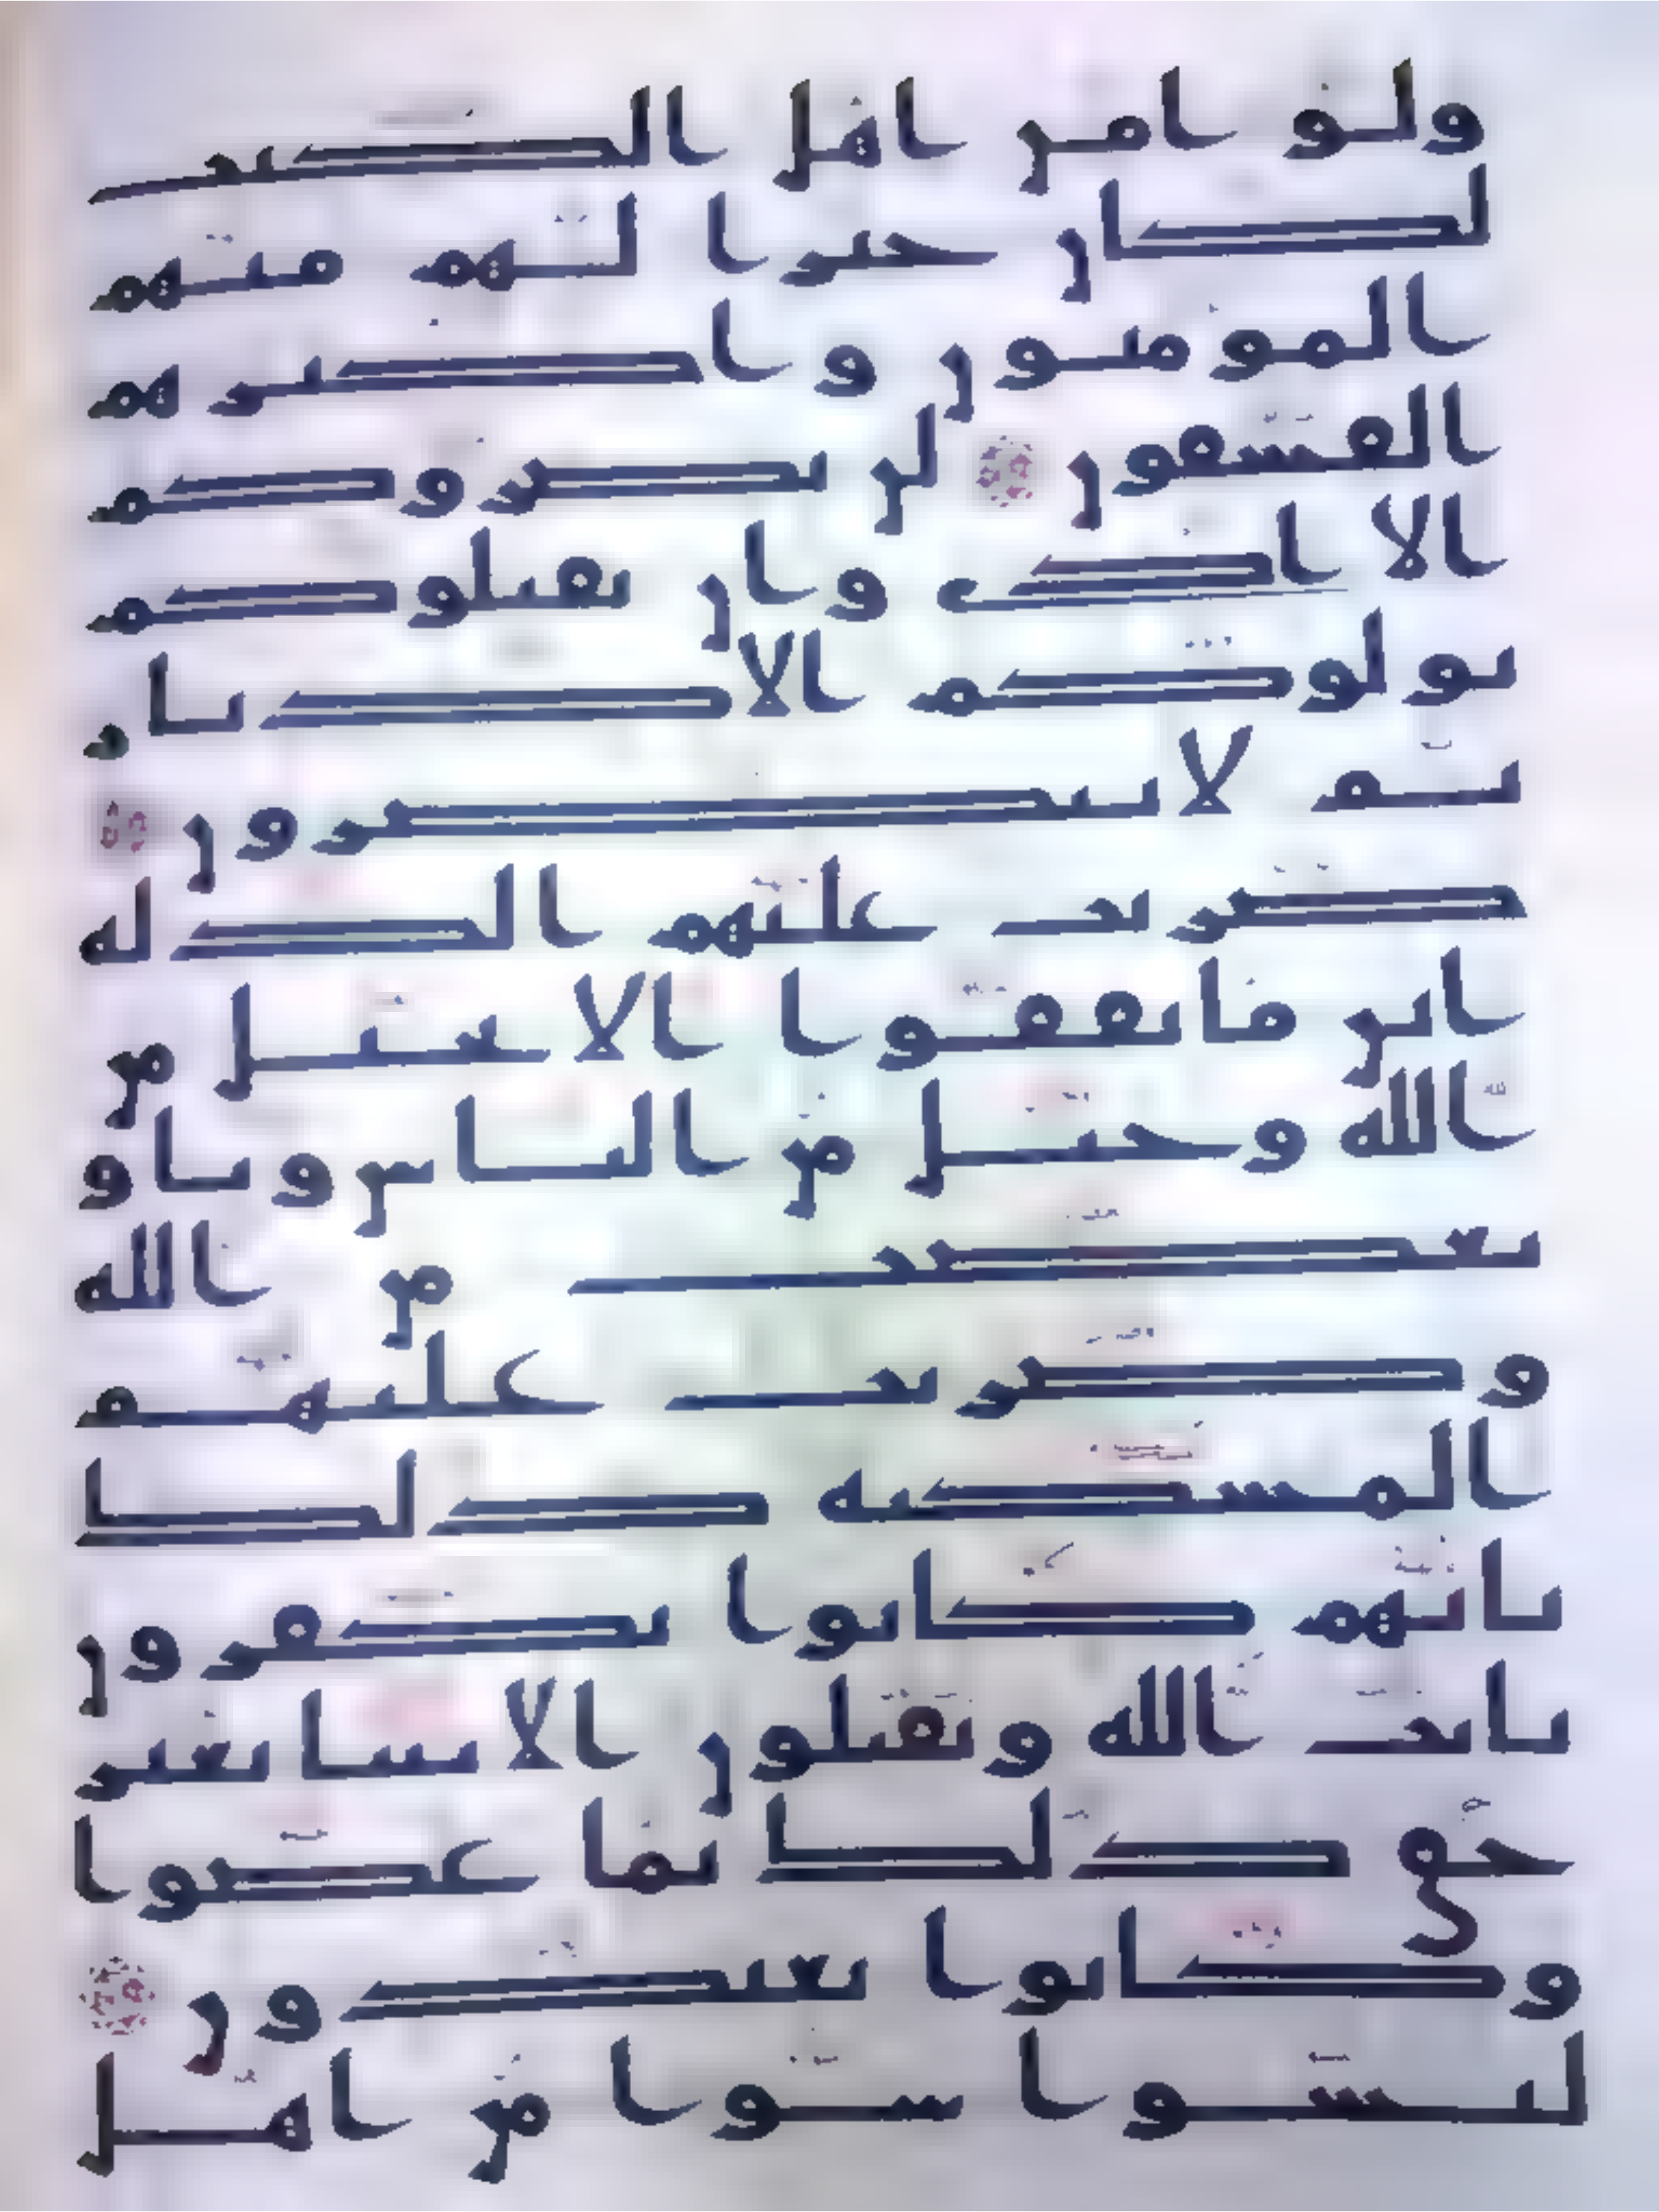 ولو امن اهل الكتب
لكان خيرا لهم منهم
المومنون واكثرهم
الفسقون لن يضروكم
الا اذى وان يقتلوكم
يولوكم الادبار
ثم لا ينصرون
ضربت عليهم الذله
اين ما ثقفوا الا بحبل من
الله وحبل من الناس وباو
بغضب من الله
وضربت عليهم
المسكنه ذلك
بانهم كانوا يكفرون
بايت الله ويقتلون الانبيا بغير
حق ذلك بما عصوا
وكانوا يعتدون
ليسوا سوا من اهل